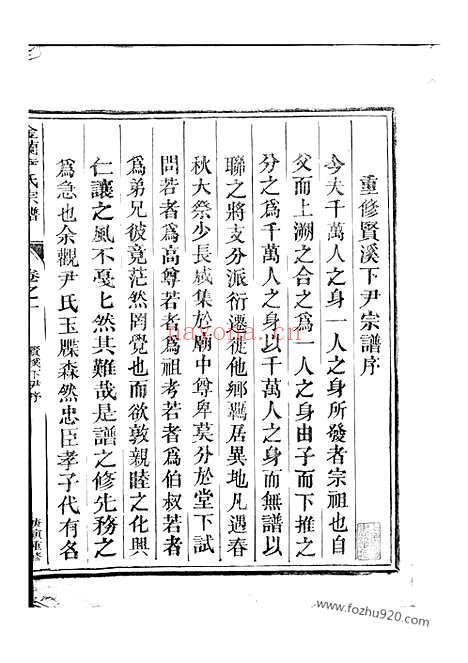 重修賢溪下尹宗譜序
今夫千萬人之身一人之身所發者宗祖也自
父而上溯之合之為一人之身由子而下推之
分之為千萬人之身以千萬人之身而無譜以
聯之將支分派衍遷徙他鄉羈居異地凡遇春
秋大祭少長咸集於廟中尊卑莫分於堂下試
問若者為高尊若者為祖考若者為伯叔若者
為弟兄彼竟茫然罔覺也而欲敦親睦之化興
仁讓之風不戞乜然其難哉是譜之修先務之
為急也余觀尹氏玉牒森然忠臣孝子代有名
金蘭尹氏宗譜
卷之一
賢溪下尹序
hayona.com
www.fozhu920.com